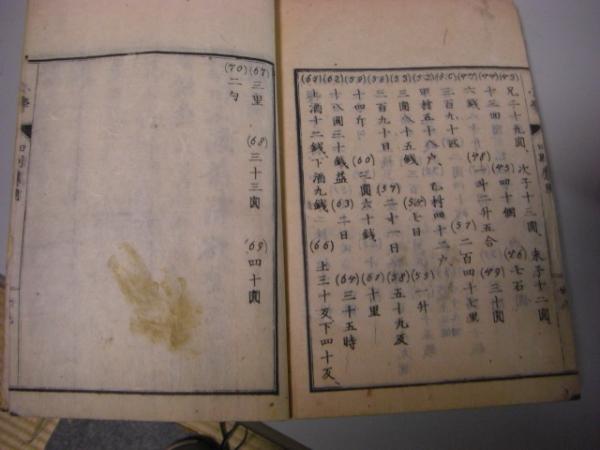 (43) 兄二十九圓 次子十三圓 末子十二圓
(44) 十三四圓 (45) 四十個 (46) 七石
(47) 六錢 (48) 一斗二升五合 (49) 三十圓
三百九十 (51) 二百四十七里
(52) 甲村五十八戶、乙村四十二戶、
(53) 三圓八十五錢 (54) 七日 (55) 一升
(56) 三百九十日 (57) 二十一日 (58) 五十九反
(59) 十四斤 (60) 三圓六十錢 (61) 十里
(62) 十八圓三十錢益 (63) 二日 (64) 三十五時
(65) 上酒十二錢、下酒九錢、 (66) 上三十反下四十反、
(67) 三里 (68) 三十三圓 (69) 四十圓
(70) 二勺